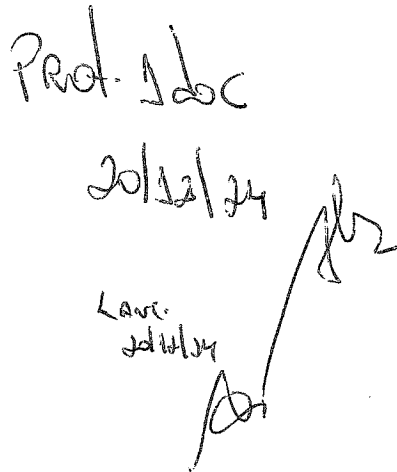 Prot. 1doc
20/12/24
Lanc.
20/12/24